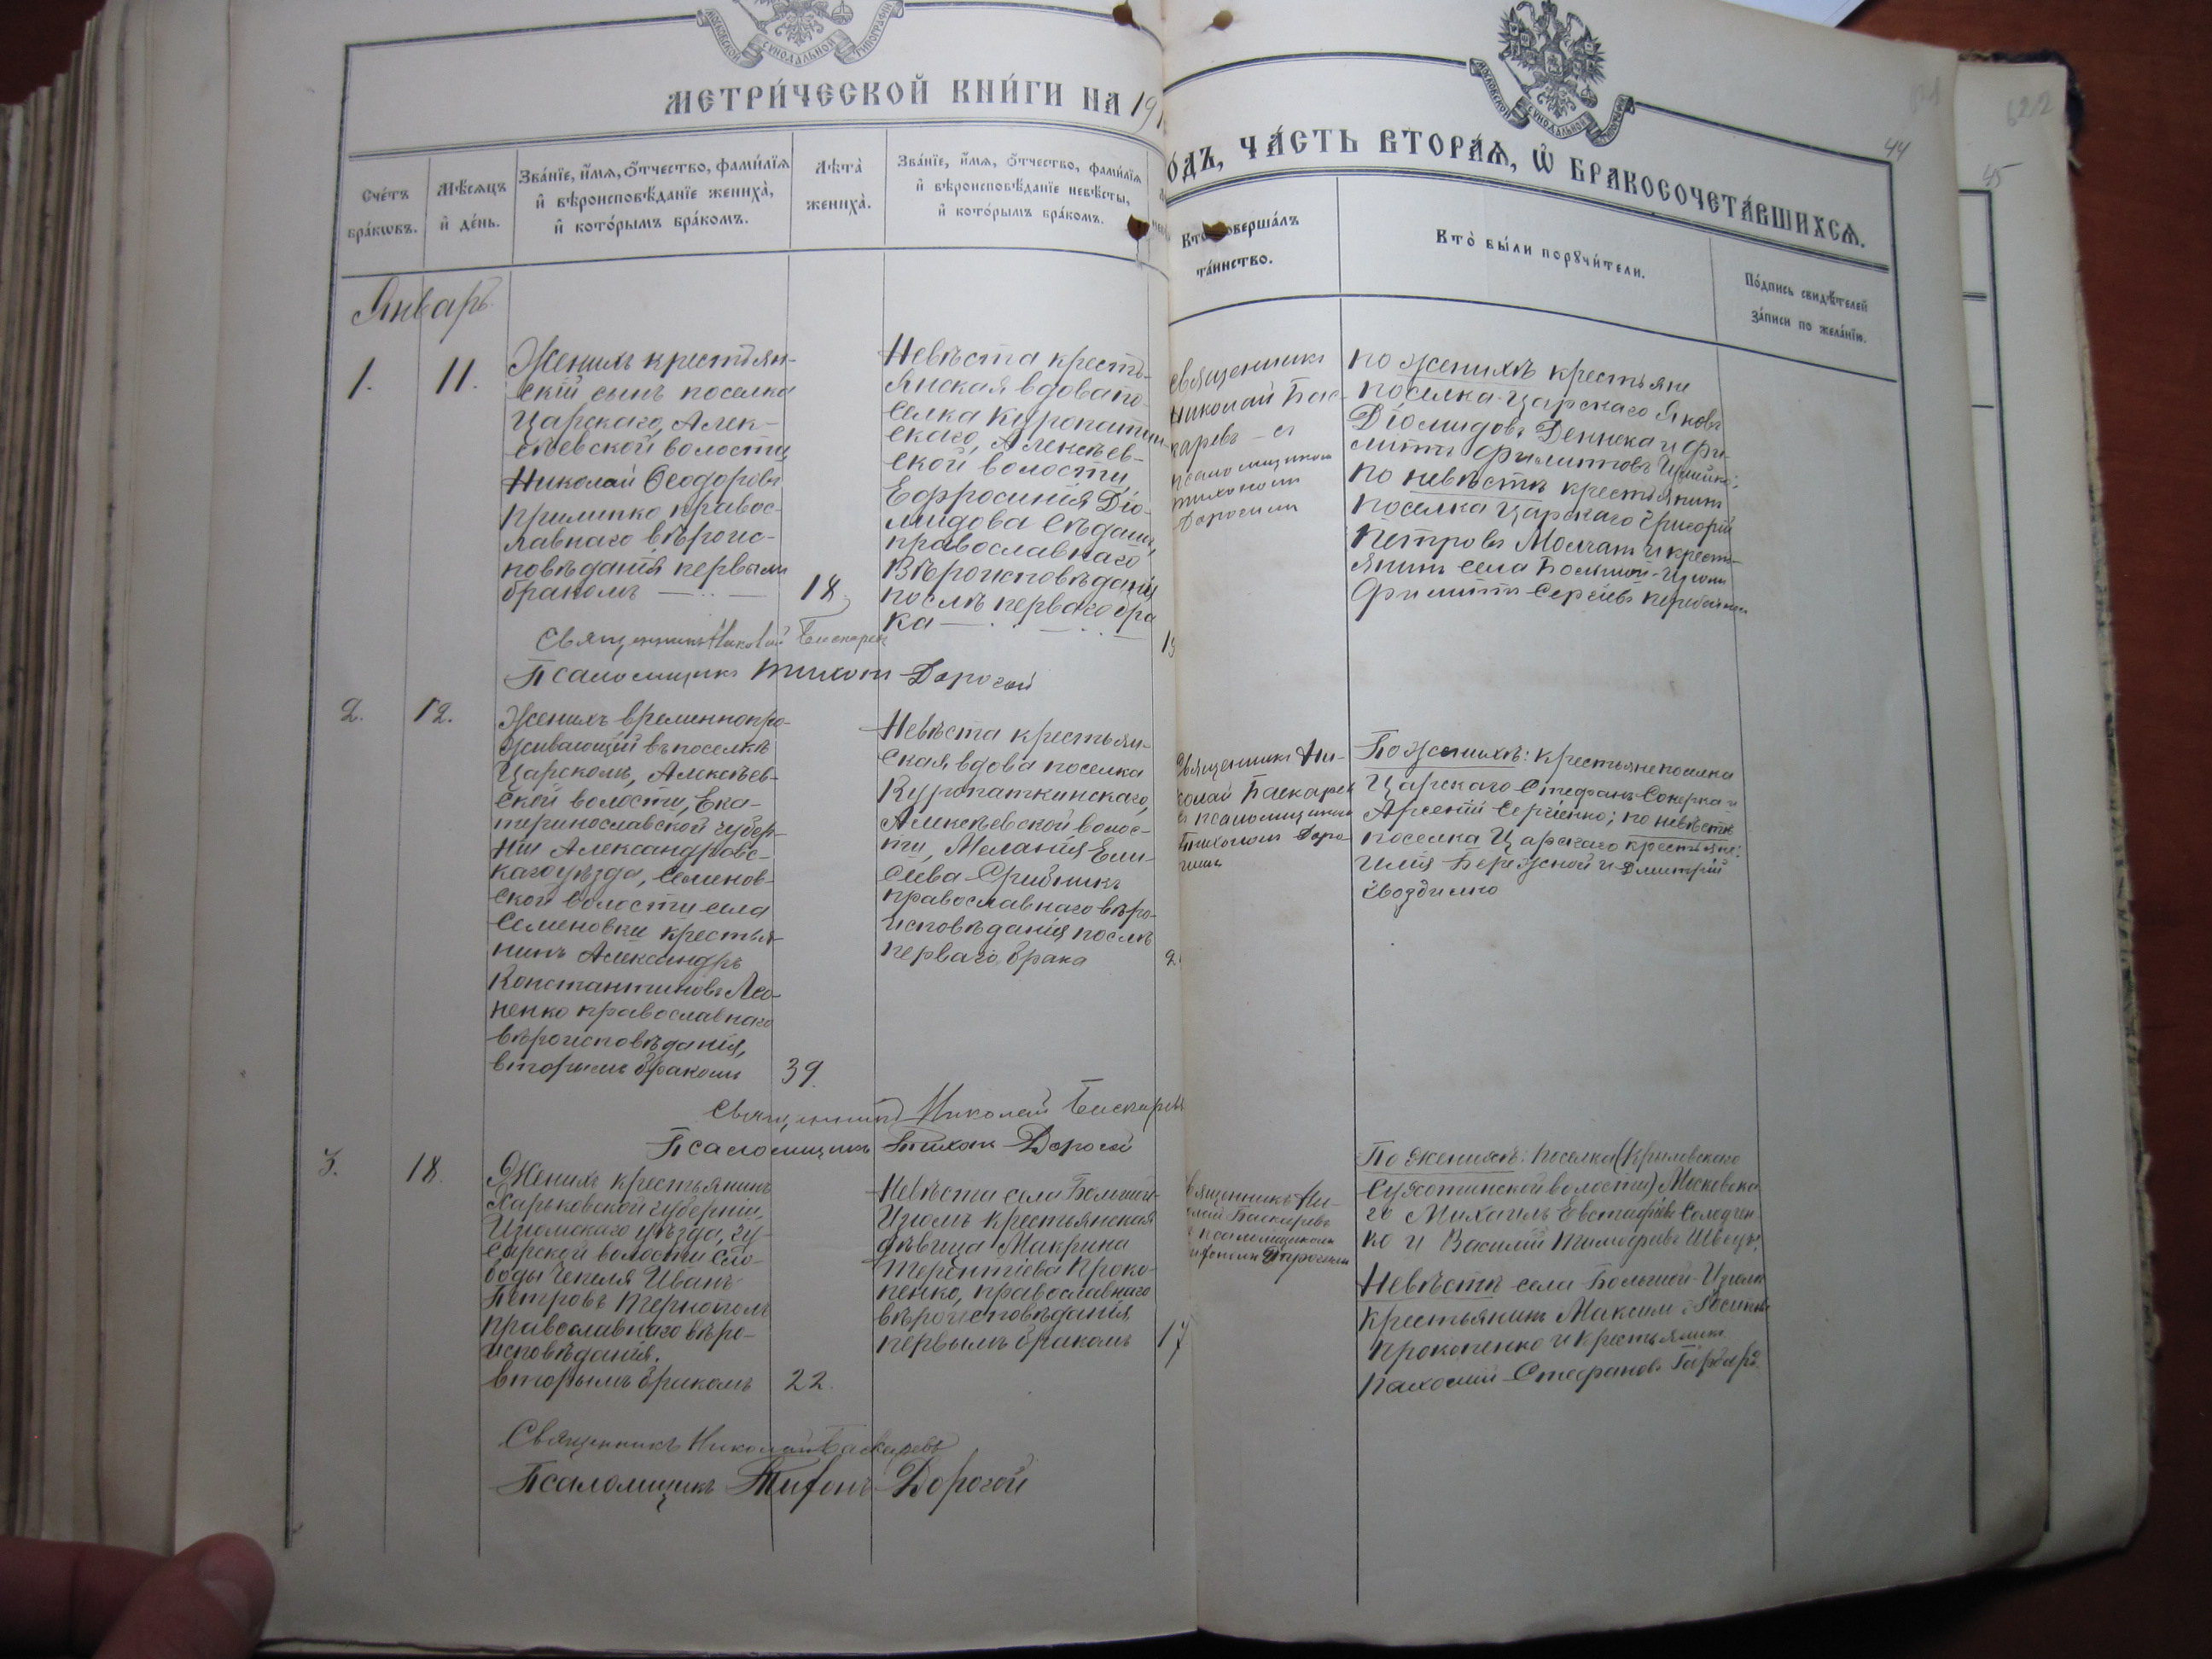 МОСКОВСКОЙ СУНОДАЛЬНОЙ ТИПОГРАФІИ
МОСКОВСКОЙ СУНОДАЛЬНОЙ ТИПОГРАФІИ
МЕТРИ́ЧЕСКОЙ КНИ́ГИ НА 19
О́ДЪ, ЧА́СТЬ ВТОРА́Ѧ, Ѽ БРАКОСОЧЕТА́ВШИХСѦ.
44
45
622
Сче́тъ
бра́кѡвъ.
Мѣ́сѧцъ
и҆ де́нь.
Зва́нїе, и҆́мѧ, ѻ҆́тчество, фами́лїѧ
и҆ вѣроисповѣ́данїе жениха̀,
и҆ кото́рымъ бра́комъ.
Лѣта̀
жениха̀.
Зва́нїе, и҆́мѧ, ѻ҆́тчество, фами́лїѧ
и҆ вѣроисповѣ́данїе невѣ́сты,
и҆ кото́рымъ бра́комъ.
Кто̀ соверша́лъ
та́инство.
Кто̀ бы́ли порꙋчи́тели.
По́дпись свидѣ́телей
за́писи по жела́нїю.
Январь
1.
11.
Женихъ крестьян-
скій сынъ поселка
Царскаго, Алек-
сѣевской волости
Николай Ѳеодоровъ
Прилипко правос-
лавнаго вѣроис-
повѣданія первымъ
бракомъ
18.
Невѣста кресть-
янская вдова по-
селка Куропаткин-
скаго, Алексѣев-
ской волости,
Ефросинія Діо-
мидова
православнаго
вѣроисповѣданія
послѣ перваго бра
ка
Священникъ
Николай Бас-
каревъ с
псаломщикомъ
Тихономъ
Дорогимъ
По женихѣ крестьяне
поселка Царскаго Яковъ
Діомидовъ Деннека и Фи-
липпъ Филипповъ
по невѣстѣ крестьянинъ
поселка Царскаго Григорій
Петровъ Молчанъ и кресть-
янинъ села Большой-Изюмъ
Филиппъ Сергіевъ
Священникъ Николай Баскаревъ
Псаломщикъ Тихонъ Дорогой
2.
12.
Женихъ временнопро-
живающій въ поселкѣ
Царскомъ, Алексѣев-
ской волости, Ека-
теринославской губер-
ніи Александровс-
каго уѣзда, Семенов-
ской волости села
Семеновки крестья-
нинъ Александръ
Константиновъ Лео-
ненко православнаго
вѣроисповѣданія,
вторымъ бракомъ
39.
Невѣста крестьян-
ская вдова поселка
Куропаткинскаго,
Алексѣевской волос-
ти, Меланія Ели-
сѣева Срибникъ
православнаго вѣро-
исповѣданія послѣ
перваго брака
2
Священникъ Ни-
колай Баскарев
с псаломщикомъ
Тихономъ Доро-
гимъ
По женихѣ: крестьяне поселка
Царскаго Стефанъ Сокерка и
Арсеній Сергіенко; по невѣстѣ
поселка Царскаго крестьяне:
Илія Бережной и Дмитрій
Гвоздилко
Священникъ Николай Баскаревъ
Псаломщикъ Тихонъ Дорогой
3.
18.
Женихъ крестьянинъ
Харьковской губерніи,
Изюмскаго уѣзда, гу-
саровской волости сло-
боды Чепеля Иванъ
Петровъ Тернополъ
православнаго вѣро-
исповѣданія.
вторымъ бракомъ
22
Невѣста села Большой-
Изюмъ крестьянская
дѣвица Макрина
Терентіева Проко-
пенко, православнаго
вѣроисповѣданія
первымъ бракомъ
17
вященникъ Ни-
олай Баскаревъ
с псаломщикомъ
Дорогимъ
По женихѣ: поселка (Крыловскаго
волости) Московска
го Михаилъ Евстафіевъ Солодчен
ко и Василій Тимофеевъ Шведъ;
Невѣстѣ села Большой-Изюмъ
крестьянинъ Максимъ
Прокопенко и крестьянинъ
Пахомій Стефановъ
Священникъ Николай Баскаревъ
Псаломщикъ Тифонъ Дорогой